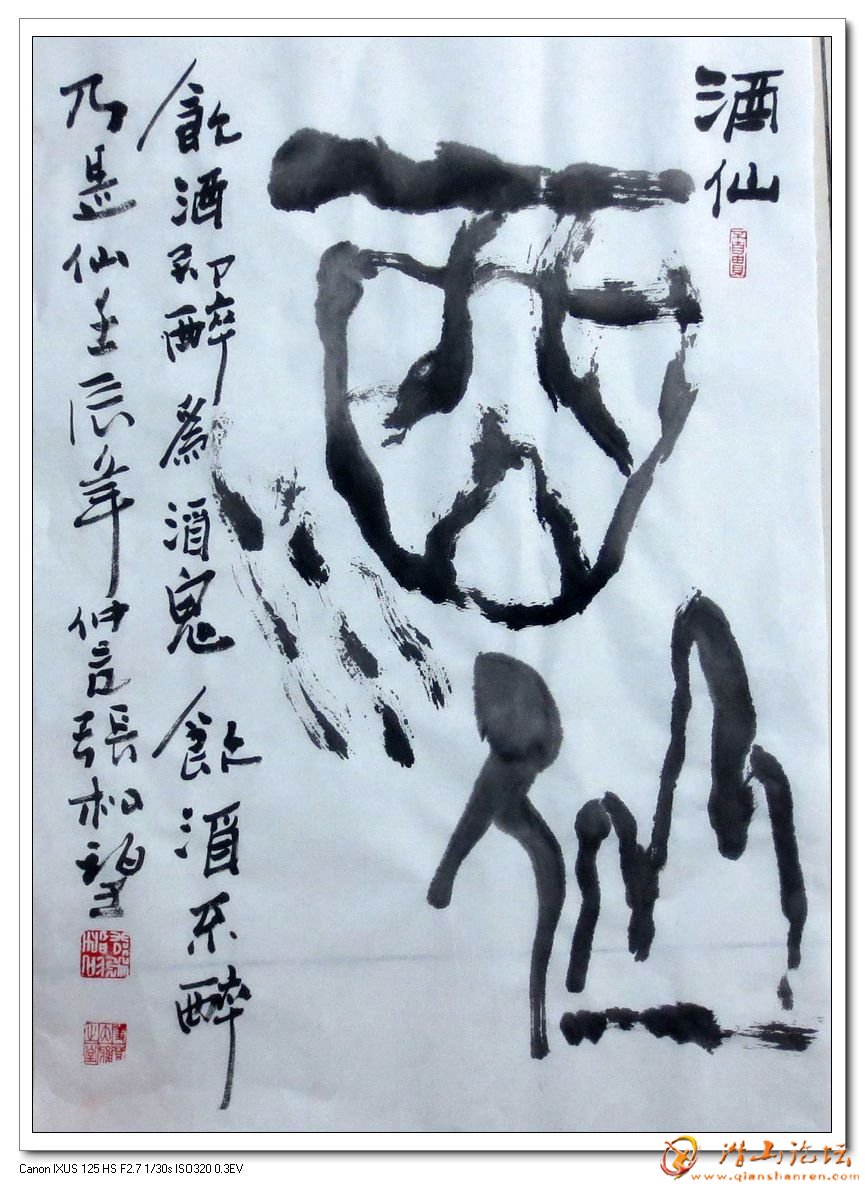 酒仙
酒仙
飲酒即醉為酒鬼飲酒不醉
乃是仙壬辰年仲言張相望
Canon IXUS 125 HS F2.7 1/30s ISO320 0.3EV
潜山论坛
www.qianshanren.com